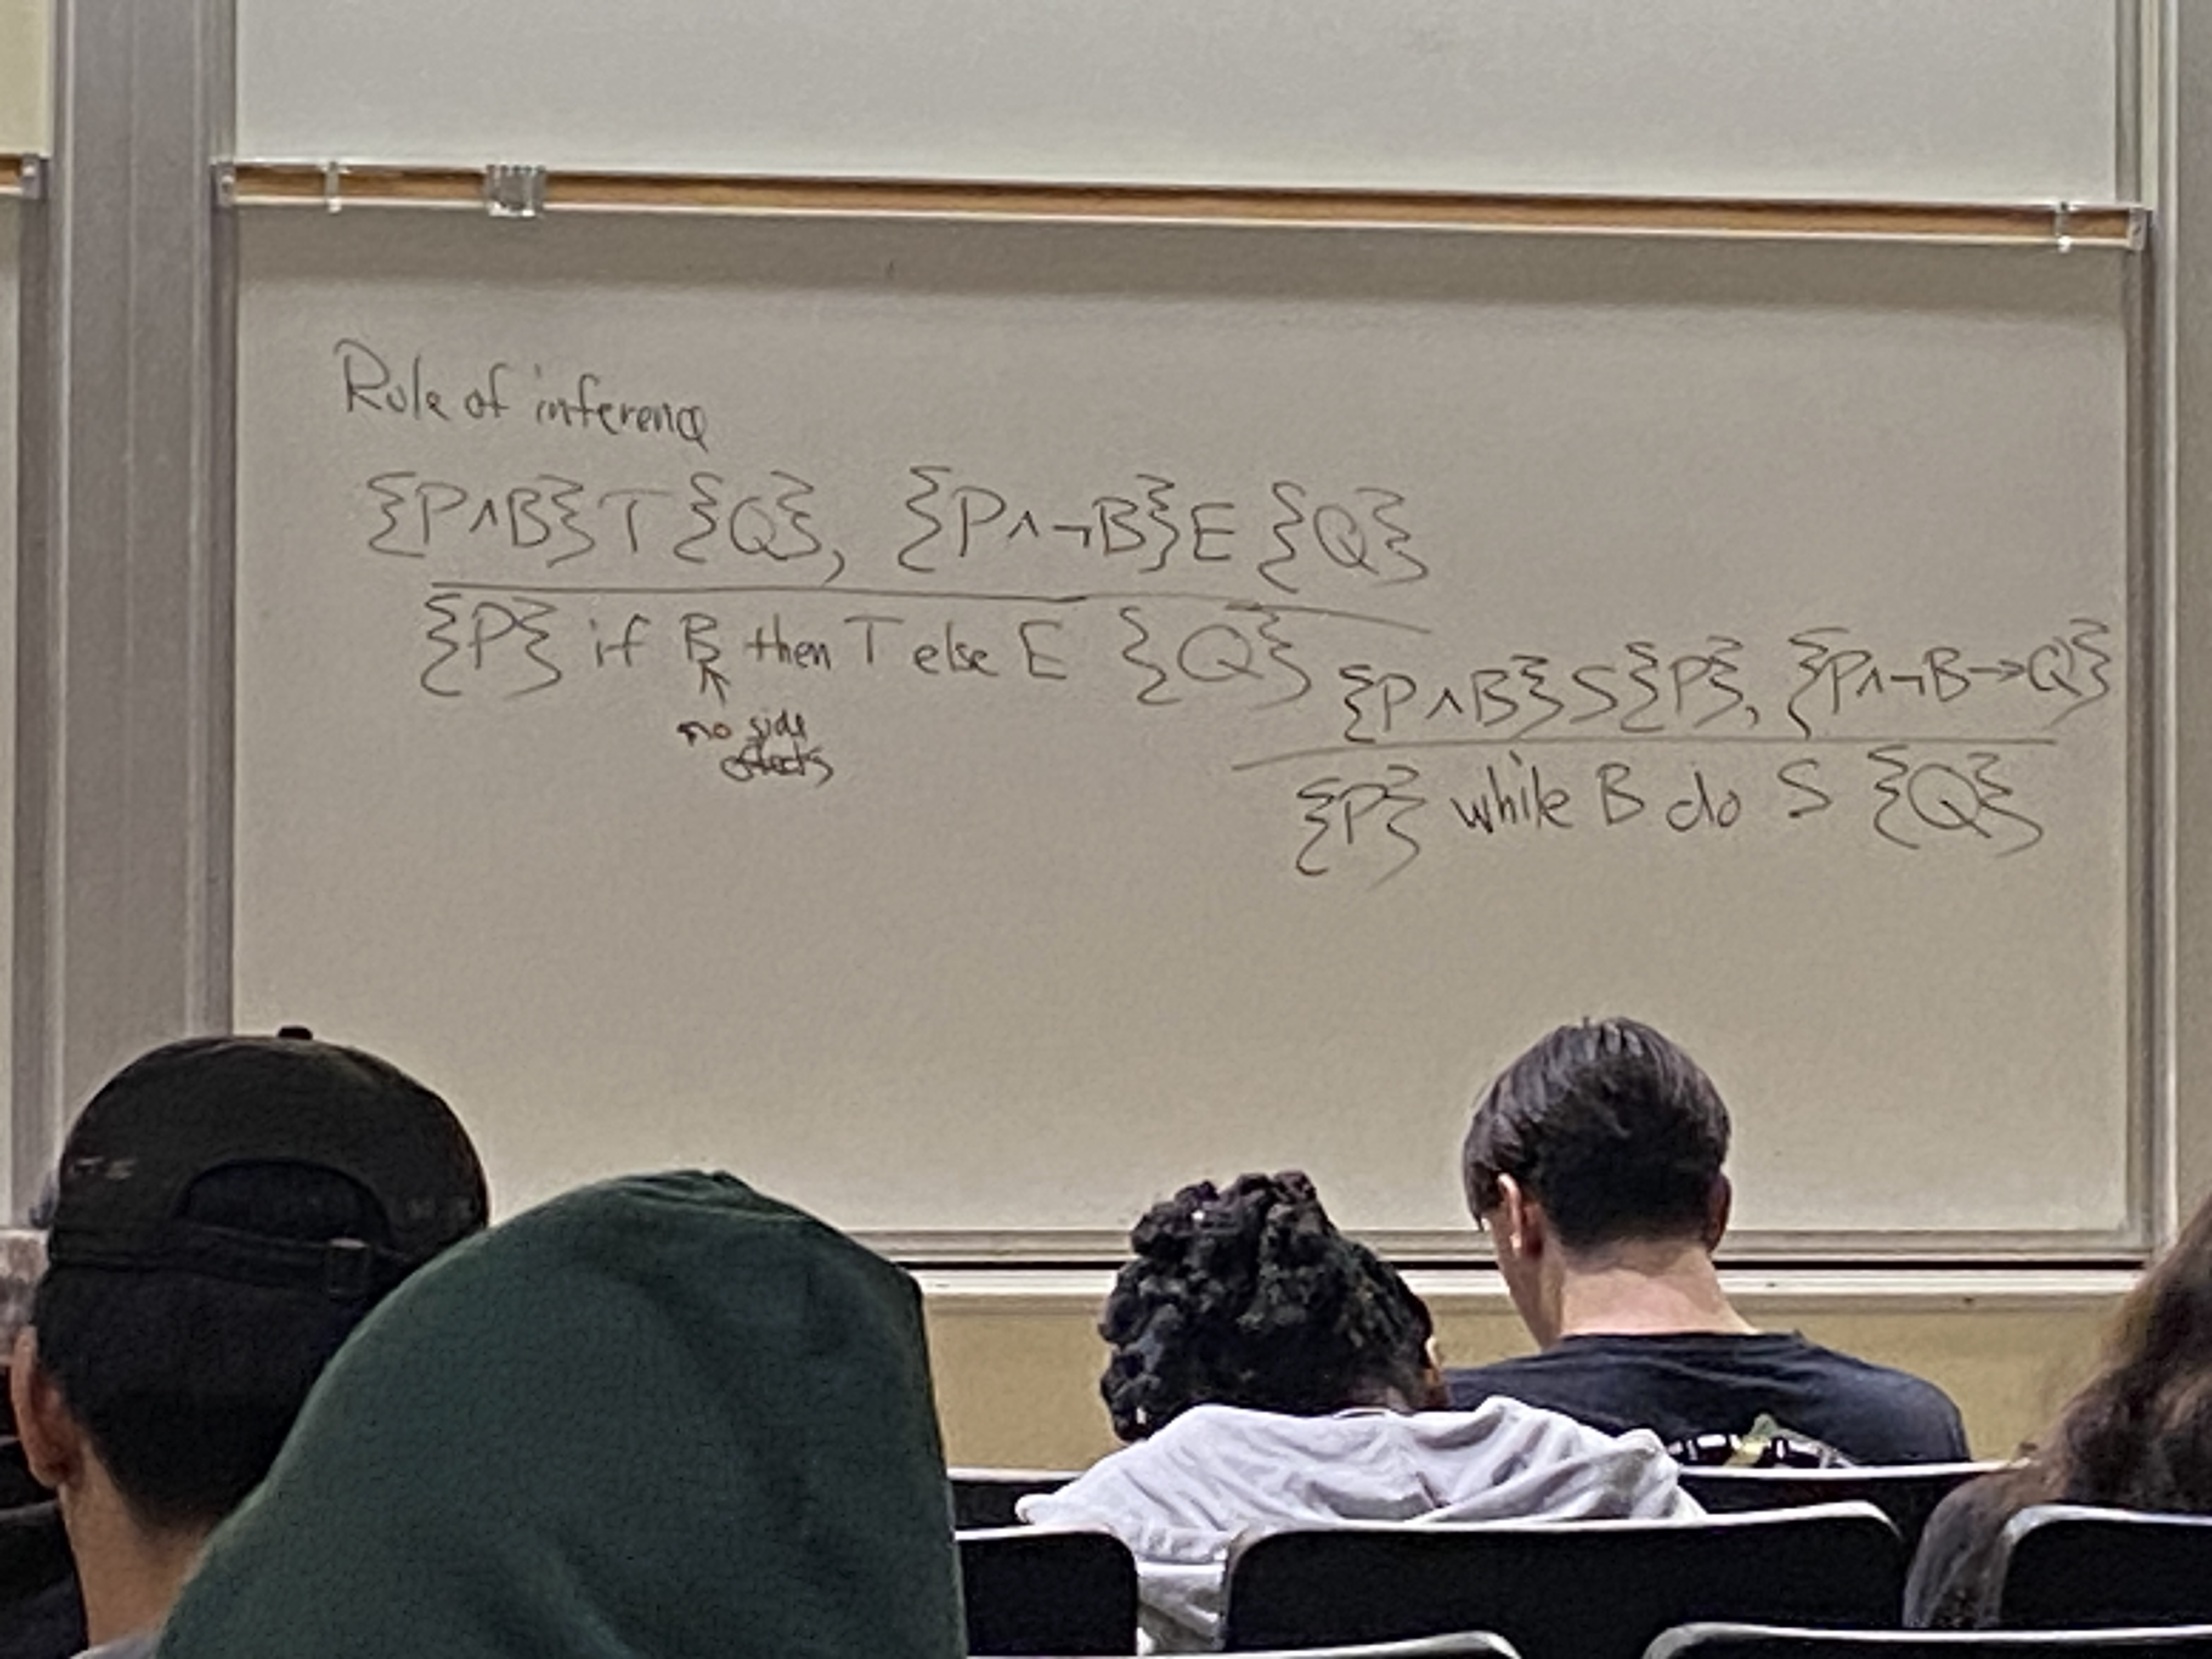 Rule of inference
{P∧B}T{Q}, {P∧¬B}E{Q}
{P} if B then T else E {Q}
no side
effects
{P∧B}S{P}, {P∧¬B→Q}
{P} while B do S {Q}